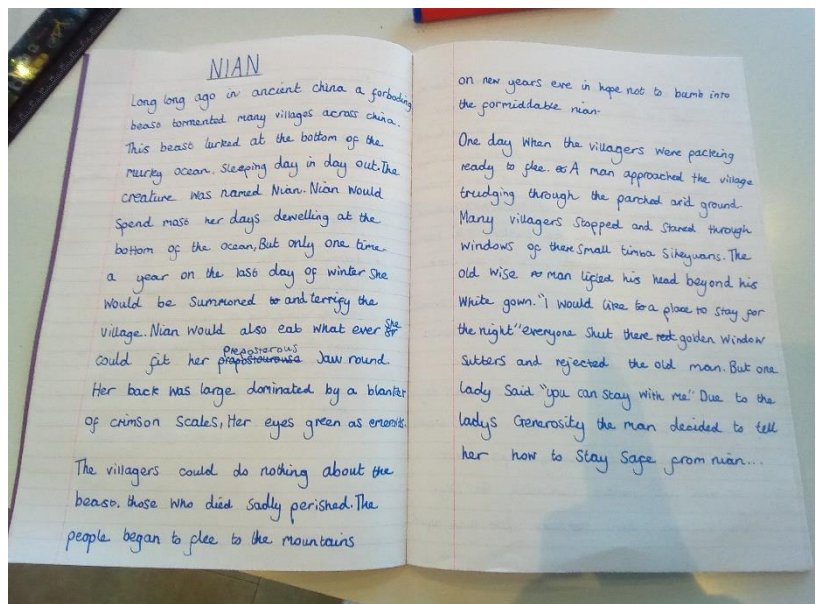 NIAN
Long long ago in ancient china a forboding
beast tormented many villages across china.
This beast lurked at the bottom of the
murky ocean. Sleeping day in day out. The
creature was named Nian. Nian would
spend most her days dewelling at the
bottom of the ocean, But only one time
a year on the last day of winter She
would be Summoned to and terrify the
village. Nian would also eat what ever she
could fit her preposterous Jaw round.
Her back was large dominated by a blanket
of crimson scales, Her eyes green as
The villagers could do nothing about the
beast. those who died sadly perished. The
people began to flee to the mountains
on new years eve in hope not to bumb into
the formiddable nian.
One day when the villagers were packing
ready to flee. A man approached the village
trudging through the parched arid ground
Many villagers stopped and stared through
windows of there small timba Siheyuans. The
old wise man lifted his head beyond his
white gown. "I would like to a place to stay for
the night" everyone shut there red golden window
sutters and rejected the old man. But one
lady said "you can stay with me" Due to the
ladys Generosity the man decided to tell
her how to Stay Safe from nian...